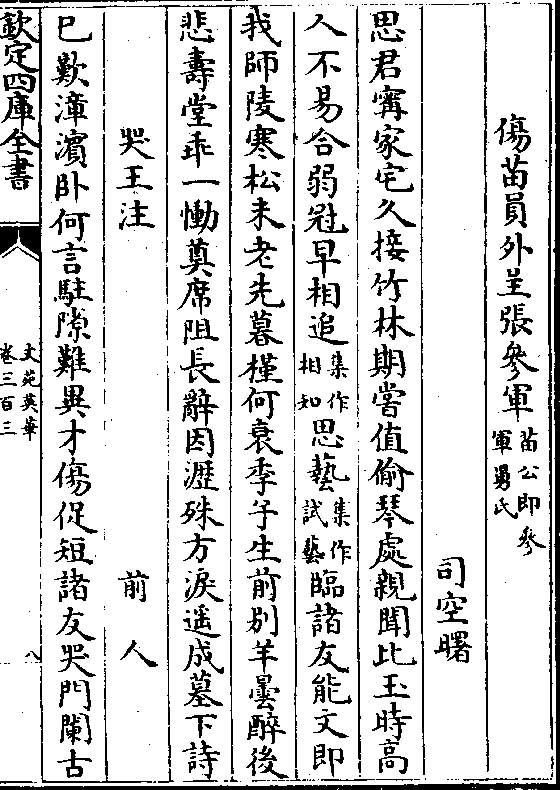 傷苗員外呈張參軍苗公即參軍舅氏
司空曙
思君寗家宅久接竹林期嘗值偷琴處親聞比玉時高
人不易合弱冠早相追集作相知思藝集作試藝臨諸友能文即
我師陵寒松未老先暮槿何衰季子生前別羊曇醉後
悲壽堂乖一慟奠席阻長辭因瀝殊方淚遥成墓下詩
哭王注 前人
已歎漳濱卧何言駐隙難異才傷促短諸友哭門闌古
欽定四庫全書
文苑英華
卷三百三
八